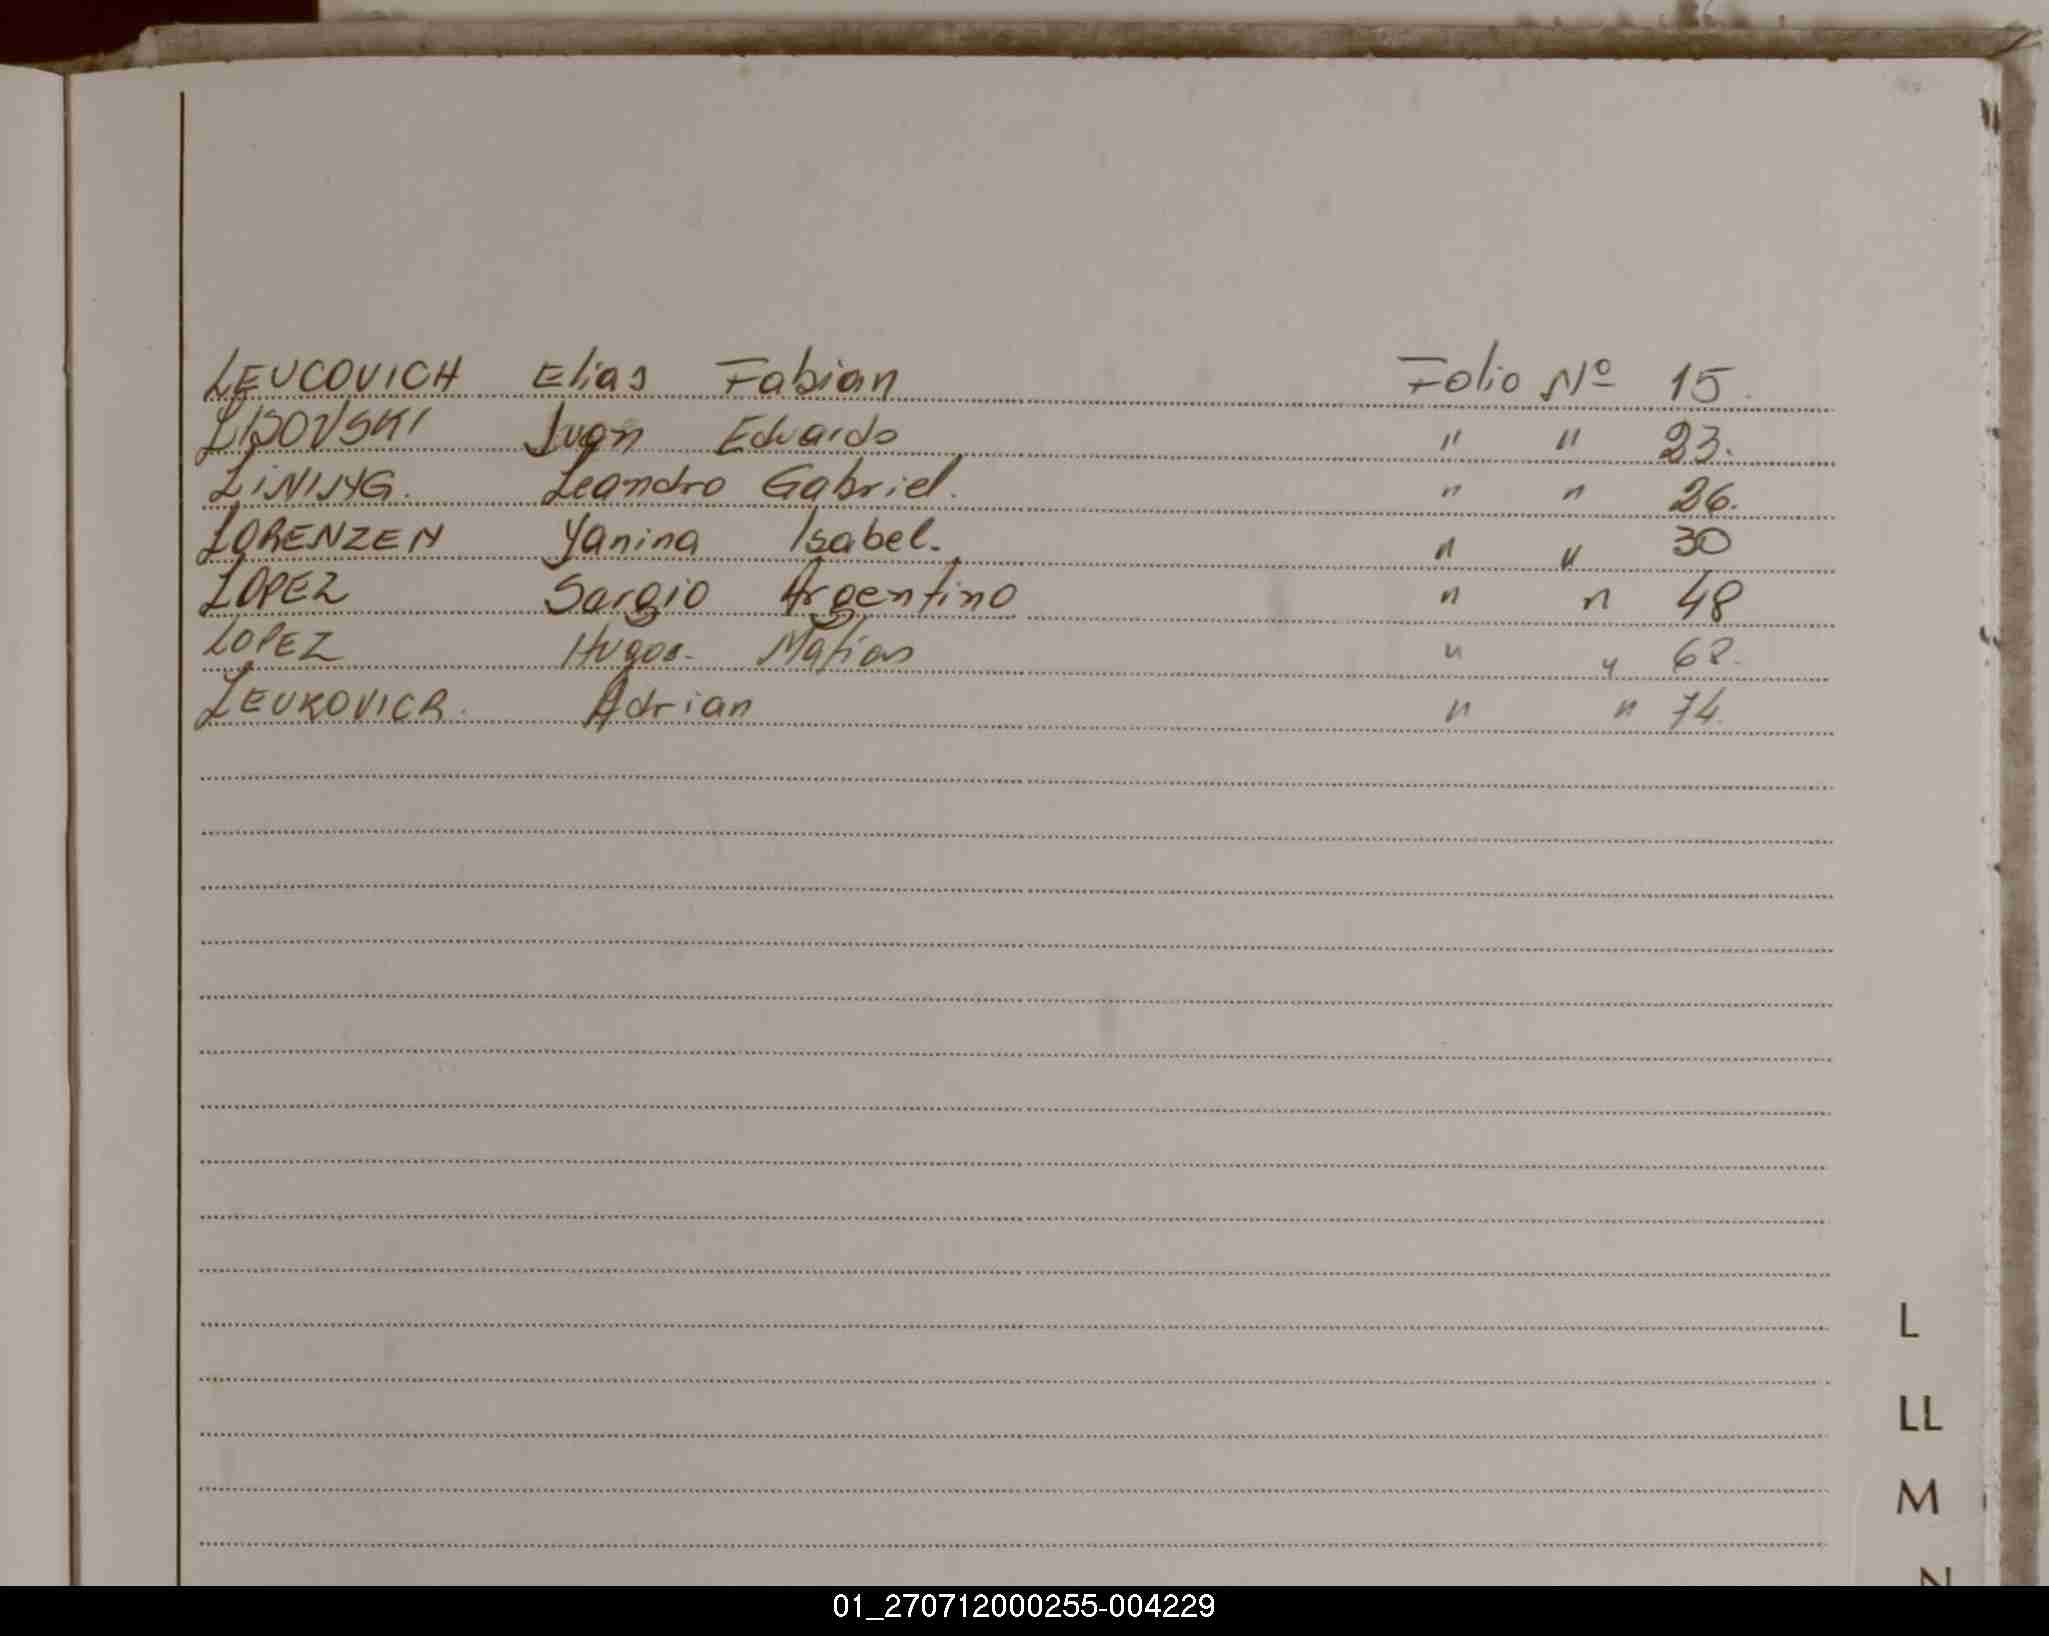 LEUCOVICH Elias Fabian Folio Nº 15.
LISOVSKI Juan Eduardo " " 23.
Leandro Gabriel. " " 26.
LORENZEN Yanina Isabel. " " 30
LOPEZ Sergio Argentino " " 48
LOPEZ Hugo Matias " " 68.
Adrian " " 74.
L
LL
M
N
01_270712000255-004229